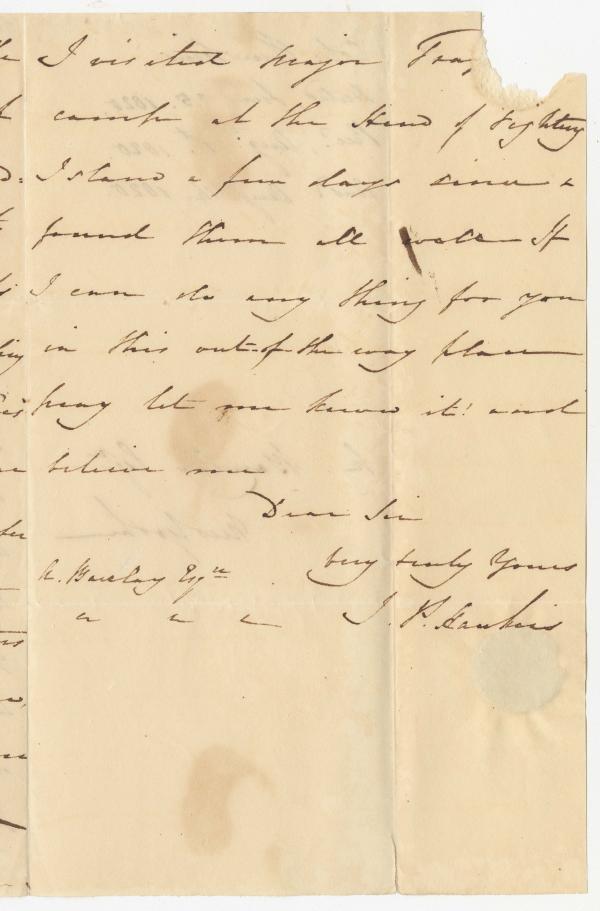 I visited Major Fra
camp at the Head of Fighting
Island a few days since &
found them all well If
I can do any thing for you
in this out of the way place
pray let me know it! and
believe me
Dear Sir
very truly Yours
A. Barclay Esqre
J. P. Hawkins